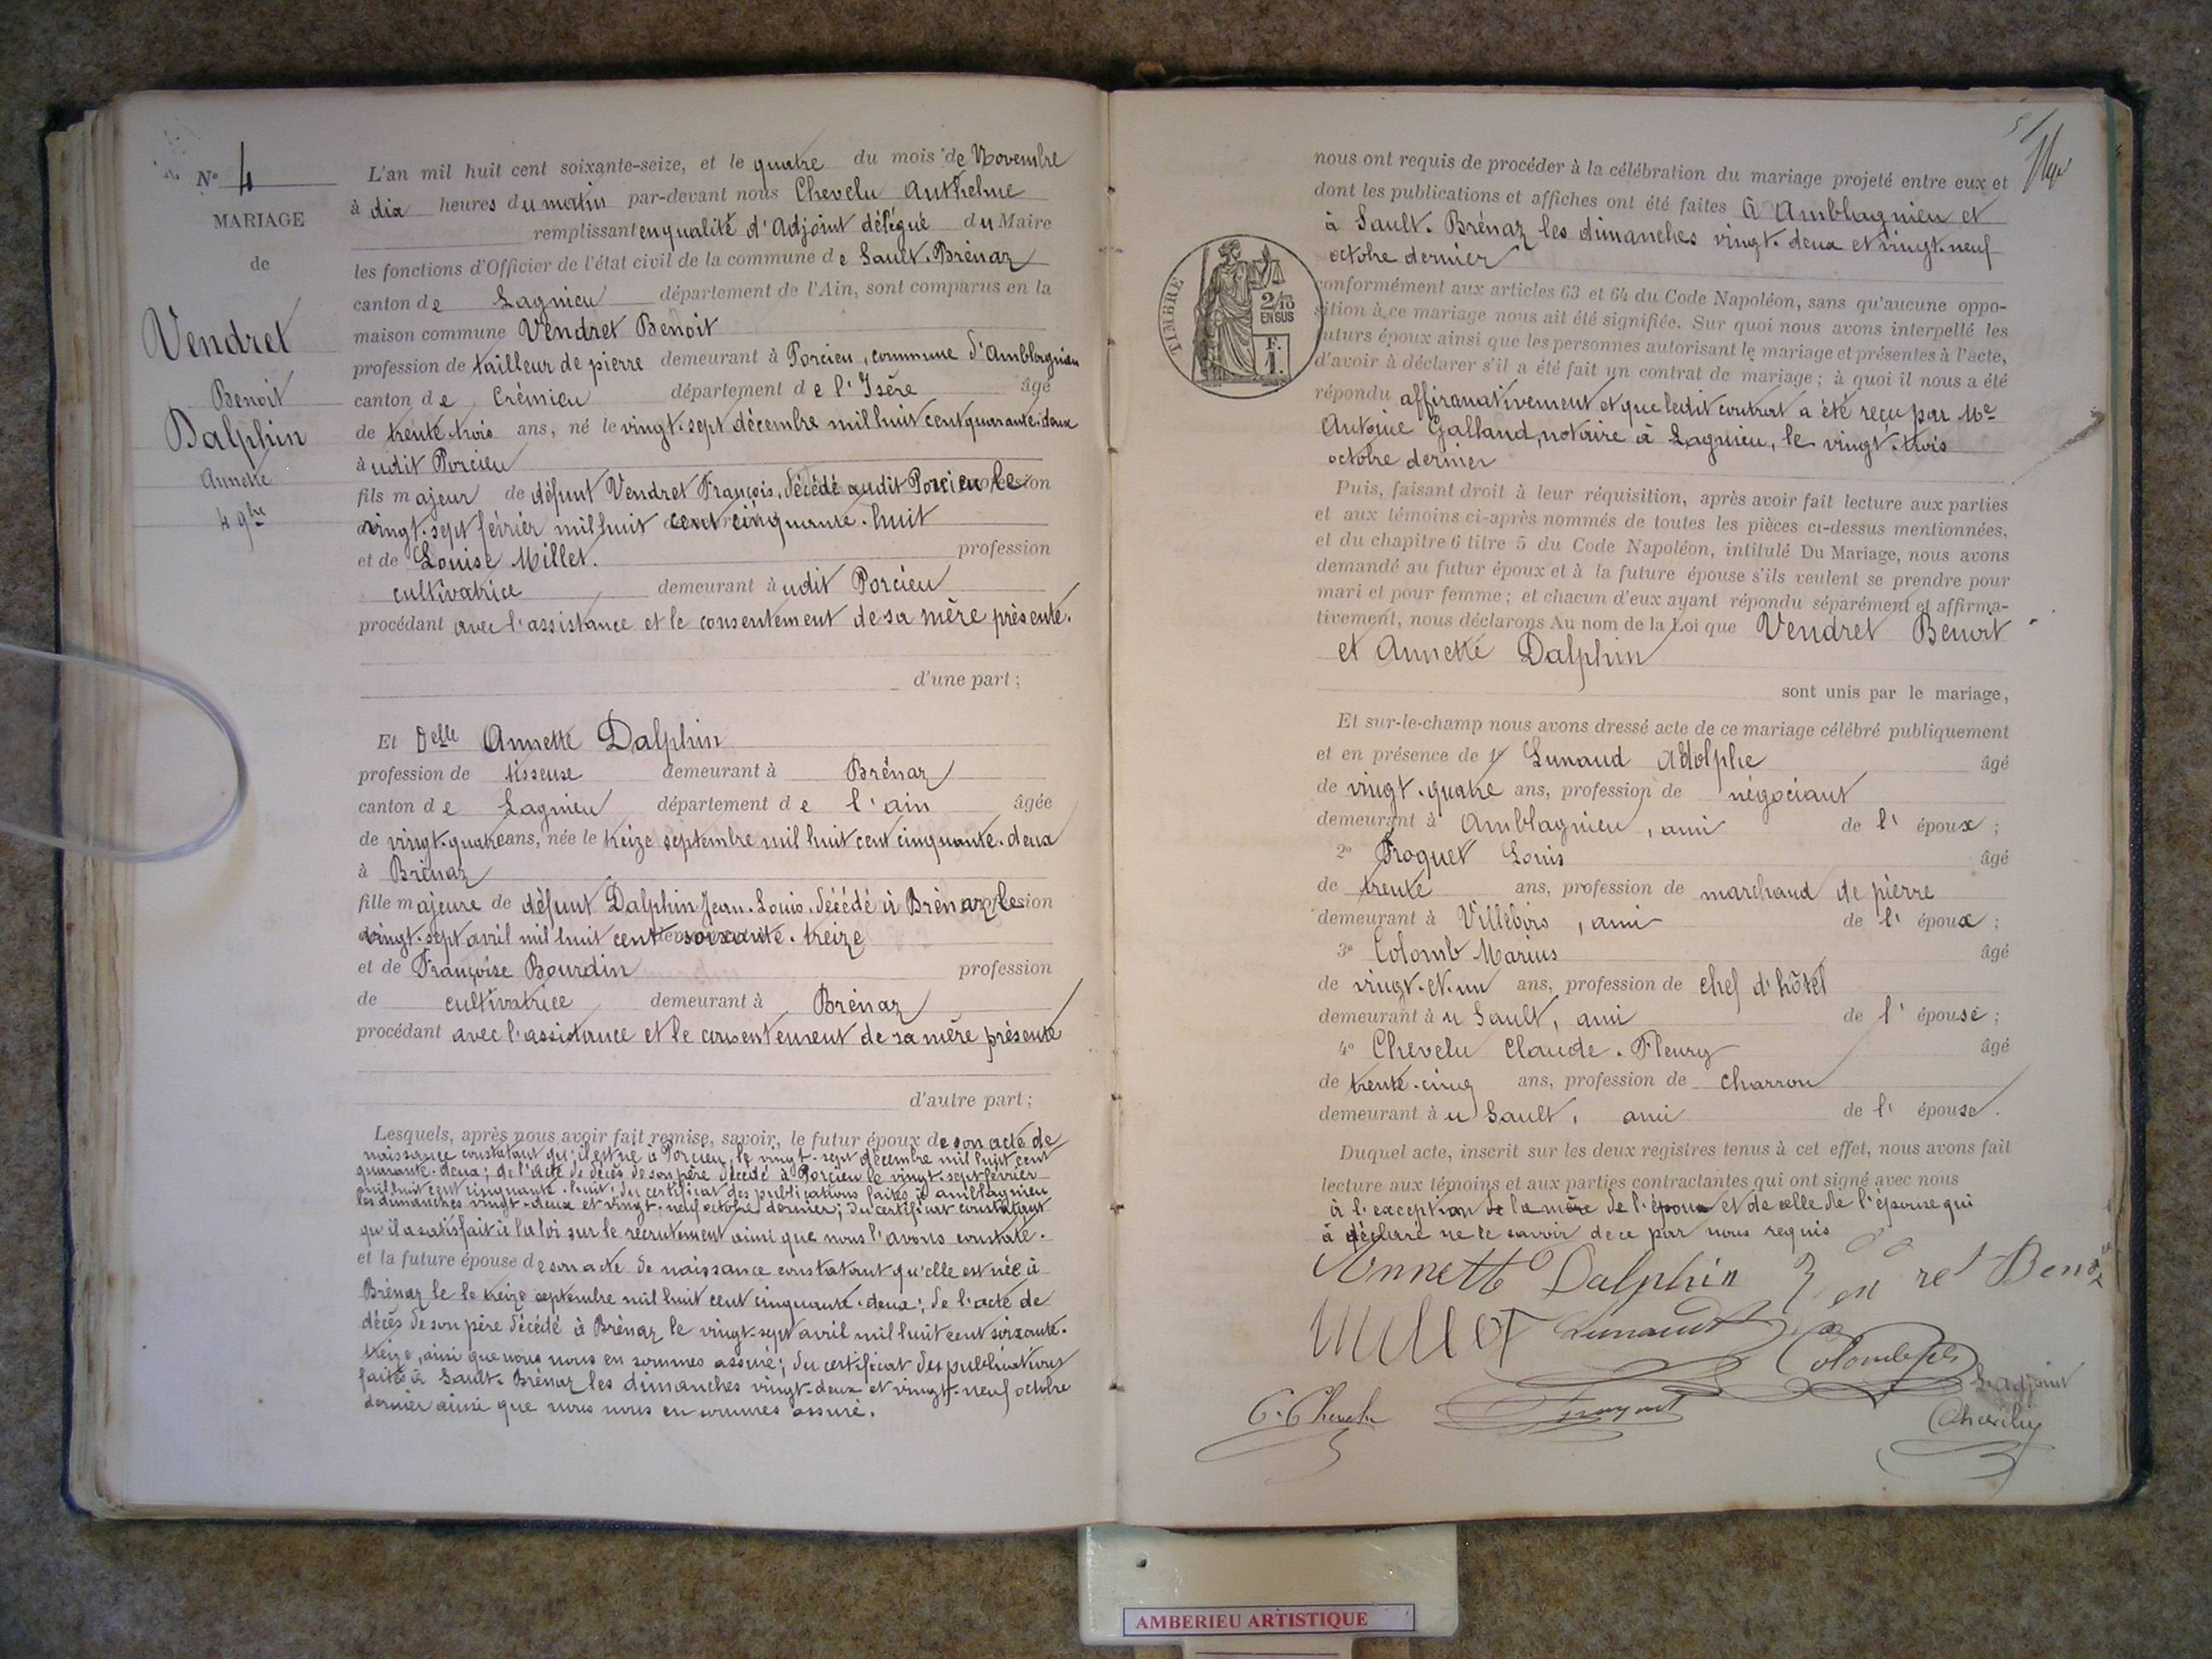 N° 4
MARIAGE
de
Vendret
Benoit
Dalphin
Annette
4 9bre
L'an mil huit cent soixante-seize, et le quatre du mois de Novembre
à dix heures du matin par-devant nous Chevelu Anthelme
remplissant en qualité d'Adjoint délégué du Maire
les fonctions d'Officier de l'état civil de la commune de Sault-Brénaz
canton de Lagnieu département de l'Ain, sont comparus en la
maison commune Vendret Benoit
profession de tailleur de pierre demeurant à Porcieu, commune d'Amblagnieu
canton de Crémieu département de l'Isère âgé
de trente-trois ans, né le vingt-sept décembre mil huit cent quarante-deux
à udit Porcieu
fils majeur de défunt Vendret François, décédé audit Porcieu le profession
vingt-sept février mil huit cent cinquante-huit
et de Louise Millet. profession
cultivatrice demeurant à udit Porcieu
procédant avec l'assistance et le consentement de sa mère présente.
d'une part;
Et Delle Annette Dalphin
profession de tisseuse demeurant à Brénaz
canton de Lagnieu département de l'ain âgée
de vingt-quatre ans, née le treize septembre mil huit cent cinquante-deux
à Brénaz
fille majeure de défunt Dalphin Jean-Louis, décédé à Brénaz le profession
vingt-sept avril mil huit cent soixante-treize
et de Françoise Bourdin profession
de cultivatrice demeurant à Brénaz
procédant avec l'assistance et le consentement de sa mère présente
d'autre part;
Lesquels, après nous avoir fait remise, savoir, le futur époux de son acte de
naissance constatant qu'il est né à Porcieu, le vingt-sept décembre mil huit cent
quarante-deux; de l'acte de décès de son père décédé à Porcieu le vingt-sept février
mil huit cent cinquante-huit; du certificat des publications faites à amblagnieu
les dimanches vingt-deux et vingt-neuf octobre dernier; du certificat constatant
qu'il a satisfait à la loi sur le recrutement ainsi que nous l'avons constaté.
et la future épouse de son acte de naissance constatant qu'elle est née à
Brénaz le le treize septembre mil huit cent cinquante-deux; de l'acte de
décès de son père décédé à Brénaz le vingt-sept avril mil huit cent soixante-
treize, ainsi que nous nous en sommes assuré; du certificat des publications
faites à Sault-Brénaz les dimanches vingt-deux et vingt-neuf octobre
dernier ainsi que nous nous en sommes assuré.
nous ont requis de procéder à la célébration du mariage projeté entre eux et
dont les publications et affiches ont été faites à Amblagnieu et
à Sault-Brénaz les dimanches vingt-deux et vingt-neuf
octobre dernier
TIMBRE
2/10
EN SUS
F.
1.
conformément aux articles 63 et 64 du Code Napoléon, sans qu'aucune oppo-
sition à ce mariage nous ait été signifiée. Sur quoi nous avons interpellé les
futurs époux ainsi que les personnes autorisant le mariage et présentes à l'acte,
d'avoir à déclarer s'il a été fait un contrat de mariage; à quoi il nous a été
répondu affirmativement et que ledit contrat a été reçu par Me
Antoine Galland, notaire à Lagnieu, le vingt-trois
octobre dernier
Puis, faisant droit à leur réquisition, après avoir fait lecture aux parties
et aux témoins ci-après nommés de toutes les pièces ci-dessus mentionnées,
et du chapitre 6 titre 5 du Code Napoléon, intitulé Du Mariage, nous avons
demandé au futur époux et à la future épouse s'ils veulent se prendre pour
mari et pour femme; et chacun d'eux ayant répondu séparément et affirma-
tivement, nous déclarons Au nom de la Loi que Vendret Benoit
et Annette Dalphin
sont unis par le mariage,
Et sur-le-champ nous avons dressé acte de ce mariage célébré publiquement
et en présence de 1° Lunaud Adolphe âgé
de vingt-quatre ans, profession de négociant
demeurant à Amblagnieu, ami de l'époux;
2° Froquet Louis âgé
de trente ans, profession de marchand de pierre
demeurant à Villebois, ami de l'époux;
3° Colomb Marius âgé
de vingt-et-un ans, profession de chef d'hôtel
demeurant à u Sault, ami de l'épouse;
4° Chevelu Claude-Fleury âgé
de trente-cinq ans, profession de charron
demeurant à u Sault, ami de l'épouse.
Duquel acte, inscrit sur les deux registres tenus à cet effet, nous avons fait
lecture aux témoins et aux parties contractantes qui ont signé avec nous
à l'exception de la mère de l'époux et de celle de l'épouse qui
à déclaré ne le savoir de ce par nous requis
Annette Dalphin Vendret Benoi
Millet Lunaud Colomb fils
L'adjoint
C. Chevelu Froquet Chevelu
AMBERIEU ARTISTIQUE